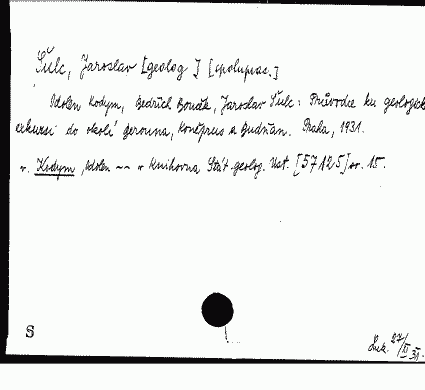 Šulc, Jaroslav [geolog] [spoluprac.]
Odolen Kodym, Bedřich Bouček, Jaroslav Šulc: Průvodce ku geologické
exkursi do okolí Berouna, Koněprus a Budňan. Praha, 1931.
v. Kodym, Odolen ~~ v Knihovna Stát. geolog. Úst. [57125] sv. 15.
S
27/XI 31.